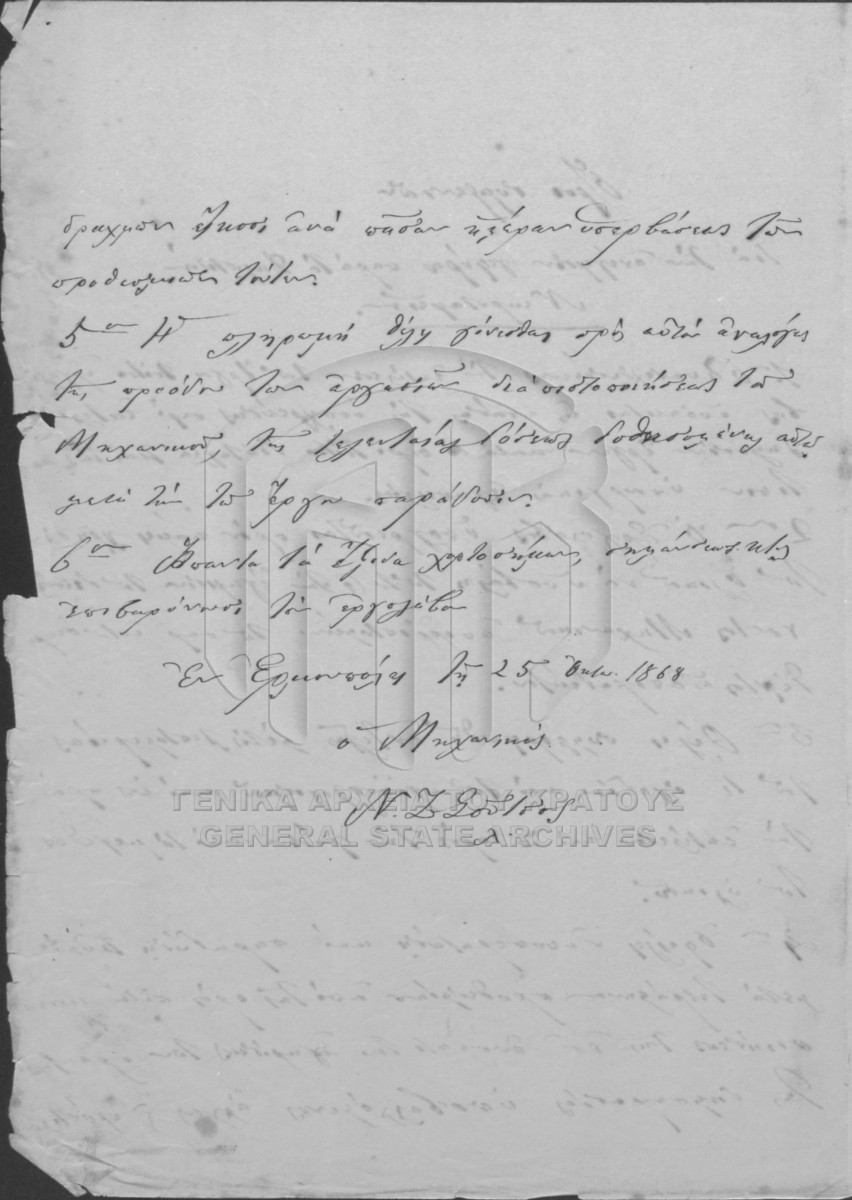 δραχμῶν εἴκοσι ἀνὰ πᾶσαν ἡμέραν ὑπερβάσεως τῆς
προθεσμίας ταύτης.
5ον Ἡ πληρωμὴ θέλει γίνεσθαι πρὸς αὐτὸν ἀναλόγως
τῆς προόδου τῶν ἐργασιῶν διὰ πιστοποιήσεως τοῦ
Μηχανικοῦ, τῆς τελευταίας δόσεως δοθησομένης αὐτῷ
μετὰ τὴν τοῦ ἔργου παράδοσιν.
6ον Ἅπαντα τὰ ἔξοδα χαρτοσήμου, σημάνσεως κτλ
ἐπιβαρύνουσι τὸν ἐργολάβον
Ἐν Ἑρμουπόλει τῇ 25 Ὀκτω. 1868
ὁ Μηχανικὸς
Ν. Σοῦτσος
ΓΕΝΙΚΑ ΑΡΧΕΙΑ ΤΟΥ ΚΡΑΤΟΥΣ
GENERAL STATE ARCHIVES